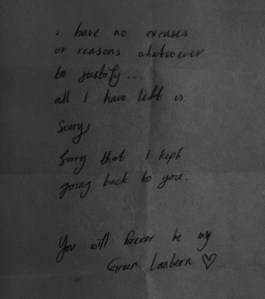 i have no excuses
or reasons whatsoever
to justify...
all I have left is
Sorry,
Sorry that I kept
going back to you.
You will forever be my
Green Lantern ♡